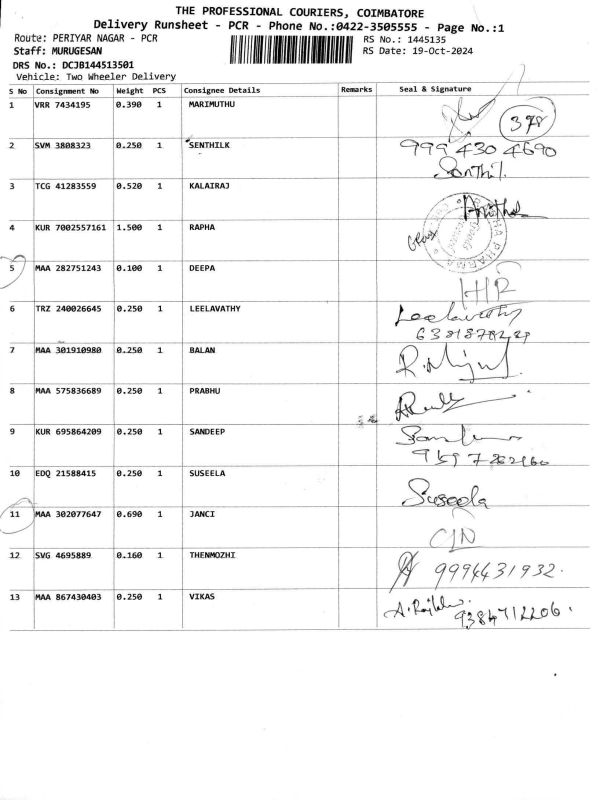 THE PROFESSIONAL COURIERS, COIMBATORE
Delivery Runsheet - PCR - Phone No.:0422-3505555 - Page No.:1
Route: PERIYAR NAGAR - PCR RS No.: 1445135
Staff: MURUGESAN RS Date: 19-Oct-2024
DRS No.: DCJB144513501
Vehicle: Two Wheeler Delivery
S No Consignment No Weight PCS Consignee Details Remarks Seal & Signature
1 VRR 7434195 0.390 1 MARIMUTHU
398
2 SVM 3808323 0.250 1 SENTHILK 999 430 4690
Senthil
3 TCG 41283559 0.520 1 KALAIRAJ
4 KUR 7002557161 1.500 1 RAPHA
PHARMA
5 MAA 282751243 0.100 1 DEEPA
HR
6 TRZ 240026645 0.250 1 LEELAVATHY Leelavathy
7 MAA 301910980 0.250 1 BALAN
8 MAA 575836689 0.250 1 PRABHU
9 KUR 695864209 0.250 1 SANDEEP
10 EDQ 21588415 0.250 1 SUSEELA Suseela
11 MAA 302077647 0.690 1 JANCI
12 SVG 4695889 0.160 1 THENMOZHI 9994431932.
13 MAA 867430403 0.250 1 VIKAS